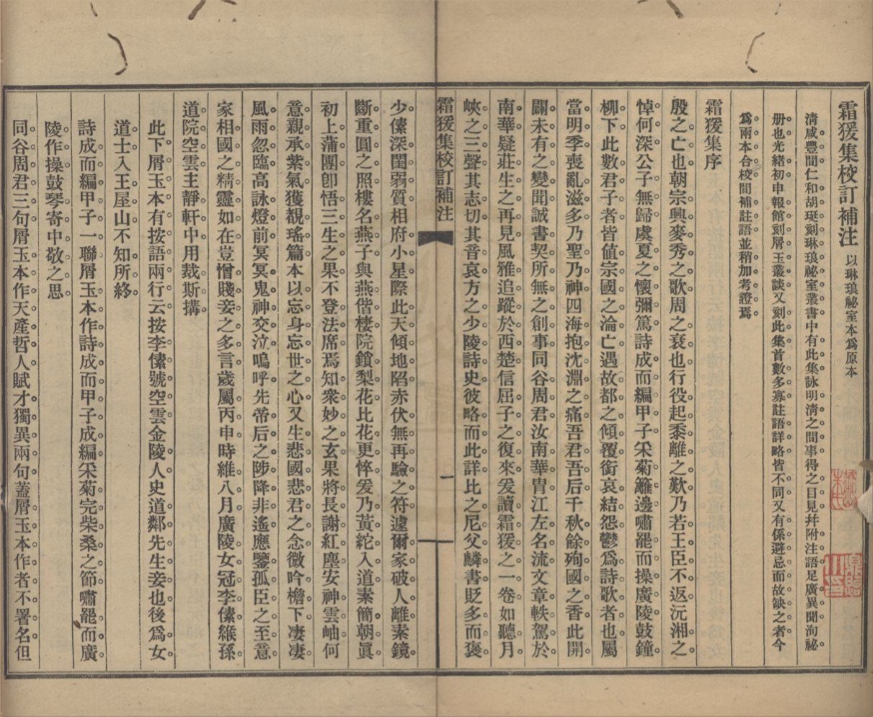 霜猨集校訂補注 以琳琅祕室本爲原本
淸咸豐間仁和胡珽刻琳琅祕室叢書中有此集詠明淸之間事得之目見幷附注語足廣異聞洵祕
册也光緖初申報館刻屑玉叢談又刻此集首數多寡註語詳略皆不同又有係避忌而故缺之者今
爲兩本合校間補註語並稍加考證焉
霜猨集序
殷之亡也朝宗興麥秀之歌周之衰也行役起黍離之歎乃若王臣不返沅湘之
悼何深公子無歸虞夏之懷彌篤詩成而編甲子采菊籬邊嘯罷而操廣陵鼓鐘
柳下此數君子者皆値宗國之淪亡遇故都之傾覆銜哀結怨鬱爲詩歌者也屬
當明季喪亂滋多乃聖乃神四海抱沈淵之痛吾君吾后千秋餘殉國之香此開
闢未有之變聞誠書契所無之創事同谷周君汝南華胄江左名流文章軼駕於
南華疑莊生之再見風雅追蹤於西楚信屈子之復來爰讀霜猨之一卷如聽月
峽之三聲其志切其音哀方之少陵詩史彼略而此詳比之尼父麟書貶多而褒
霜猨集校訂補注
一
少傃深閨弱質相府小星際此天傾地陷赤伏無再驗之符遽爾家破人離素鏡
斷重圓之照樓名燕子與燕偕棲院鎖梨花比花更悴爰乃黃絁入道素簡朝眞
初上蒲團卽悟三生之果不登法席焉知衆妙之玄果將長謝紅塵安神雲岫何
意親承紫氣獲覩瑤篇本以忘身忘世之心又生悲國悲君之念微吟檐下凄凄
風雨忽臨高詠燈前冥冥鬼神交泣嗚呼先帝后之陟降非遙應鑒孤臣之至意
家相國之精靈如在豈憎賤妾之多言歲屬丙申時維八月廣陵女冠李傃緱孫
道院空雲主靜軒中用裁斯搆
此下屑玉本有按語兩行云按李傃號空雲金陵人史道鄰先生妾也後爲女
道士入王屋山不知所終
詩成而編甲子一聯屑玉本作詩成而甲子成編采菊完柴桑之節嘯罷而廣
陵作操鼓琴寄中敬之思
同谷周君三句屑玉本作天產哲人賦才獨異兩句蓋屑玉本作者不署名但